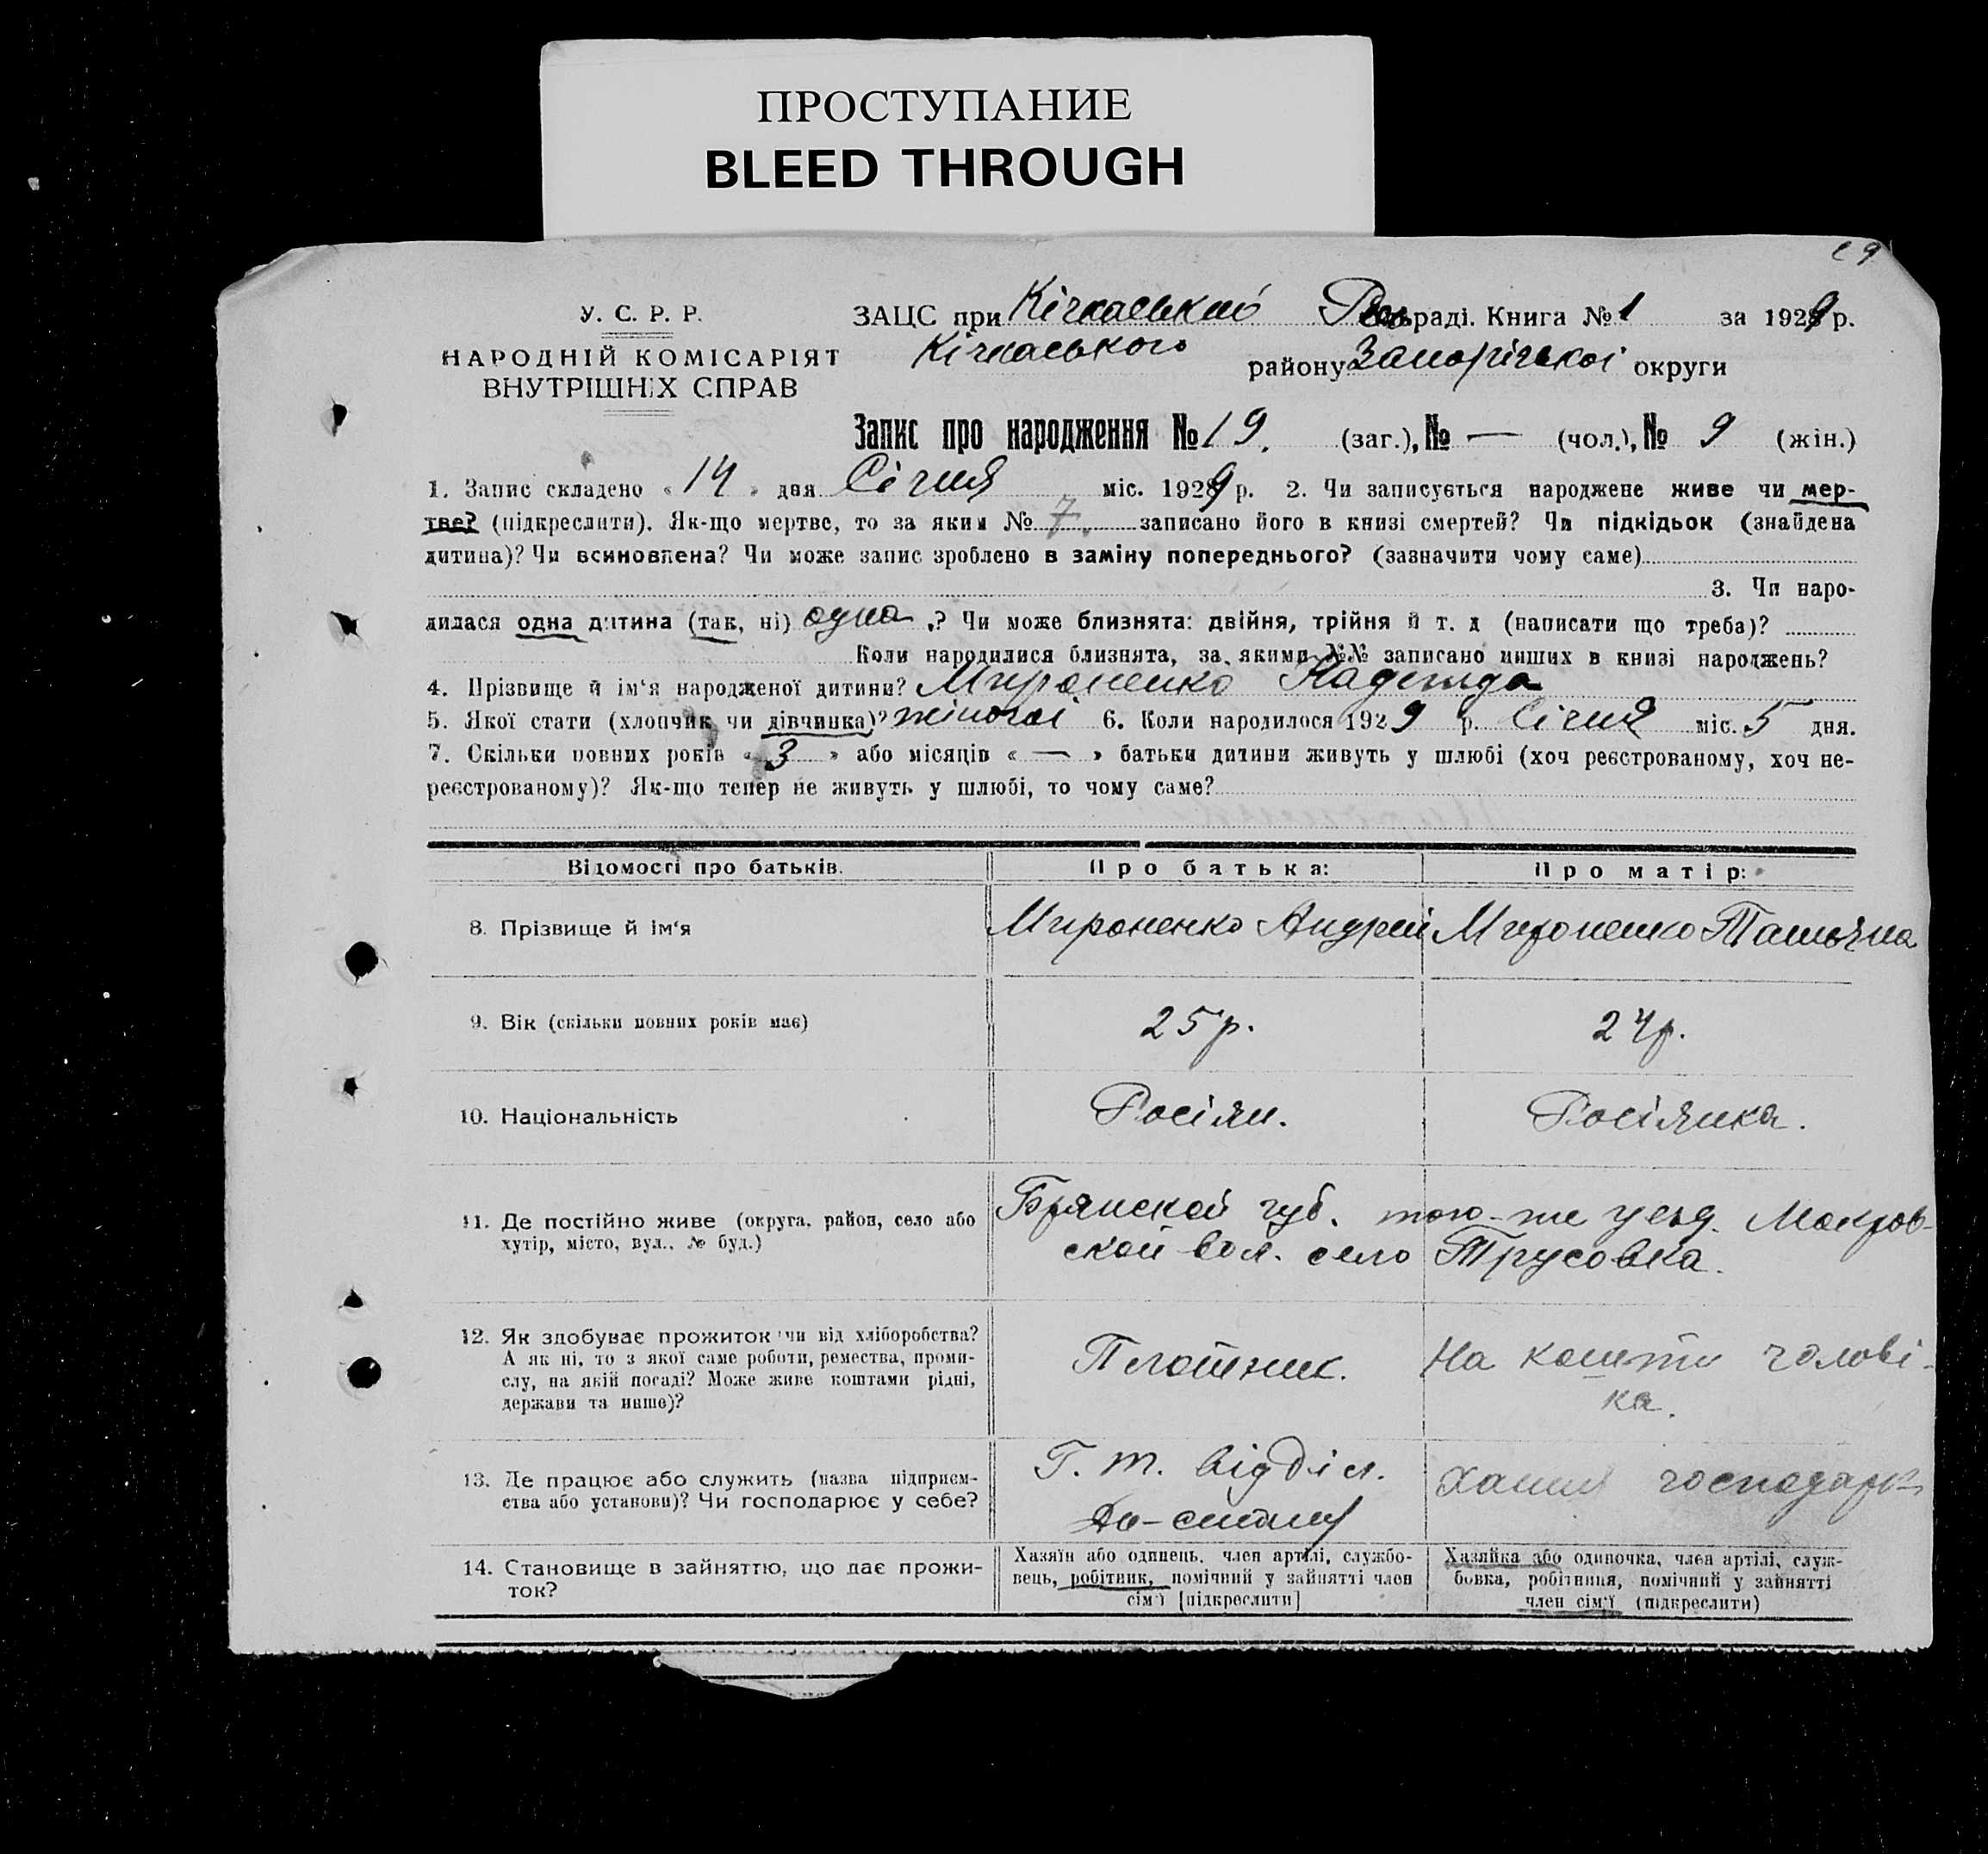 ПРОСТУПАНИЕ
BLEED THROUGH
У. С. Р. Р.
НАРОДНІЙ КОМІСАРІЯТ
ВНУТРІШНІХ СПРАВ
ЗАЦС при Кічкаський раді. Книга № 1 за 1929 р.
Кічкаського району Запорізької округи
Запис про народження № 19. (заг.), № — (чол.), № 9 (жін.)
1. Запис складено « 14 » дня Січня міс. 1929 р. 2. Чи записується народжене живе чи мер-
тве? (підкреслити). Як-що мертве, то за яким № 7. записано його в книзі смертей? Чи підкідьок (знайдена
дитина)? Чи всиновлена? Чи може запис зроблено в заміну попереднього? (зазначити чому саме)
3. Чи наро-
дилася одна дитина (так, ні) одна ? Чи може близнята: двійня, трійня й т. д (написати що треба)?
Коли народилися близнята, за якими №№ записано инших в книзі народжень?
4. Прізвище й ім'я народженої дитини? Мироненко Надежда
5. Якої стати (хлопчик чи дівчинка)? жіночої 6. Коли народилося 1929 р. Січня міс. 5 дня.
7. Скільки повних років « 3 » або місяців « — » батьки дитини живуть у шлюбі (хоч реєстрованому, хоч не-
реєстрованому)? Як-що тепер не живуть у шлюбі, то чому саме?
Відомості про батьків.
Про батька:
Про матір:
8. Прізвище й ім'я
Мироненко Андрей
Мироненко Татьяна
9. Вік (скільки повних років має)
25 р.
24 р.
10. Національність
Росіян.
Росіянка.
11. Де постійно живе (округа, район, село або
хутір, місто, вул., № буд.)
Брянской губ. того-же уезд. Мокров-
ской вол. село Трусовка.
12. Як здобуває прожиток чи від хліборобства?
А як ні, то з якої саме роботи, ремества, проми-
слу, на якій посаді? Може живе коштами рідні,
держави та инше)?
Плотник.
На кошти чолові-
ка.
13. Де працює або служить (назва підприєм-
ства або установи)? Чи господарює у себе?
Г. т. відділ.
господар-
14. Становище в зайняттю, що дає прожи-
ток?
Хазяїн або одинець, член артілі, службо-
вець, робітник, помічний у зайнятті член
сім'ї [підкреслити]
Хазяйка або одиночка, член артілі, служ-
бовка, робітниця, помічний у зайнятті
член сім'ї (підкреслити)